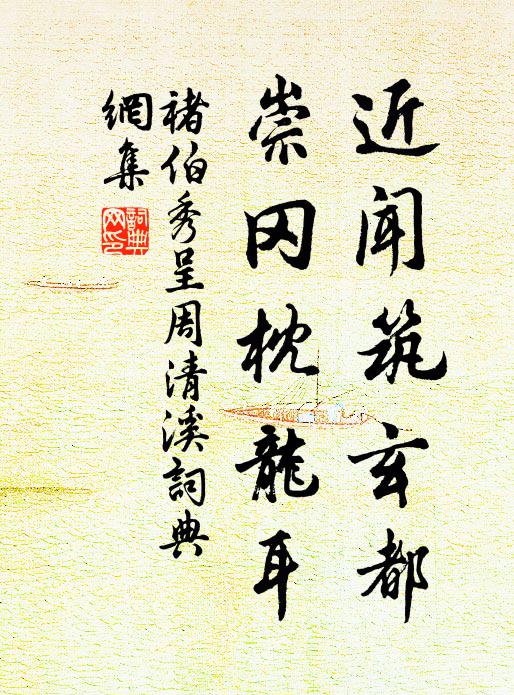 近闻筑玄都
崇冈枕龍耳
褚伯秀呈周清溪詞典
網集
詞典
网印